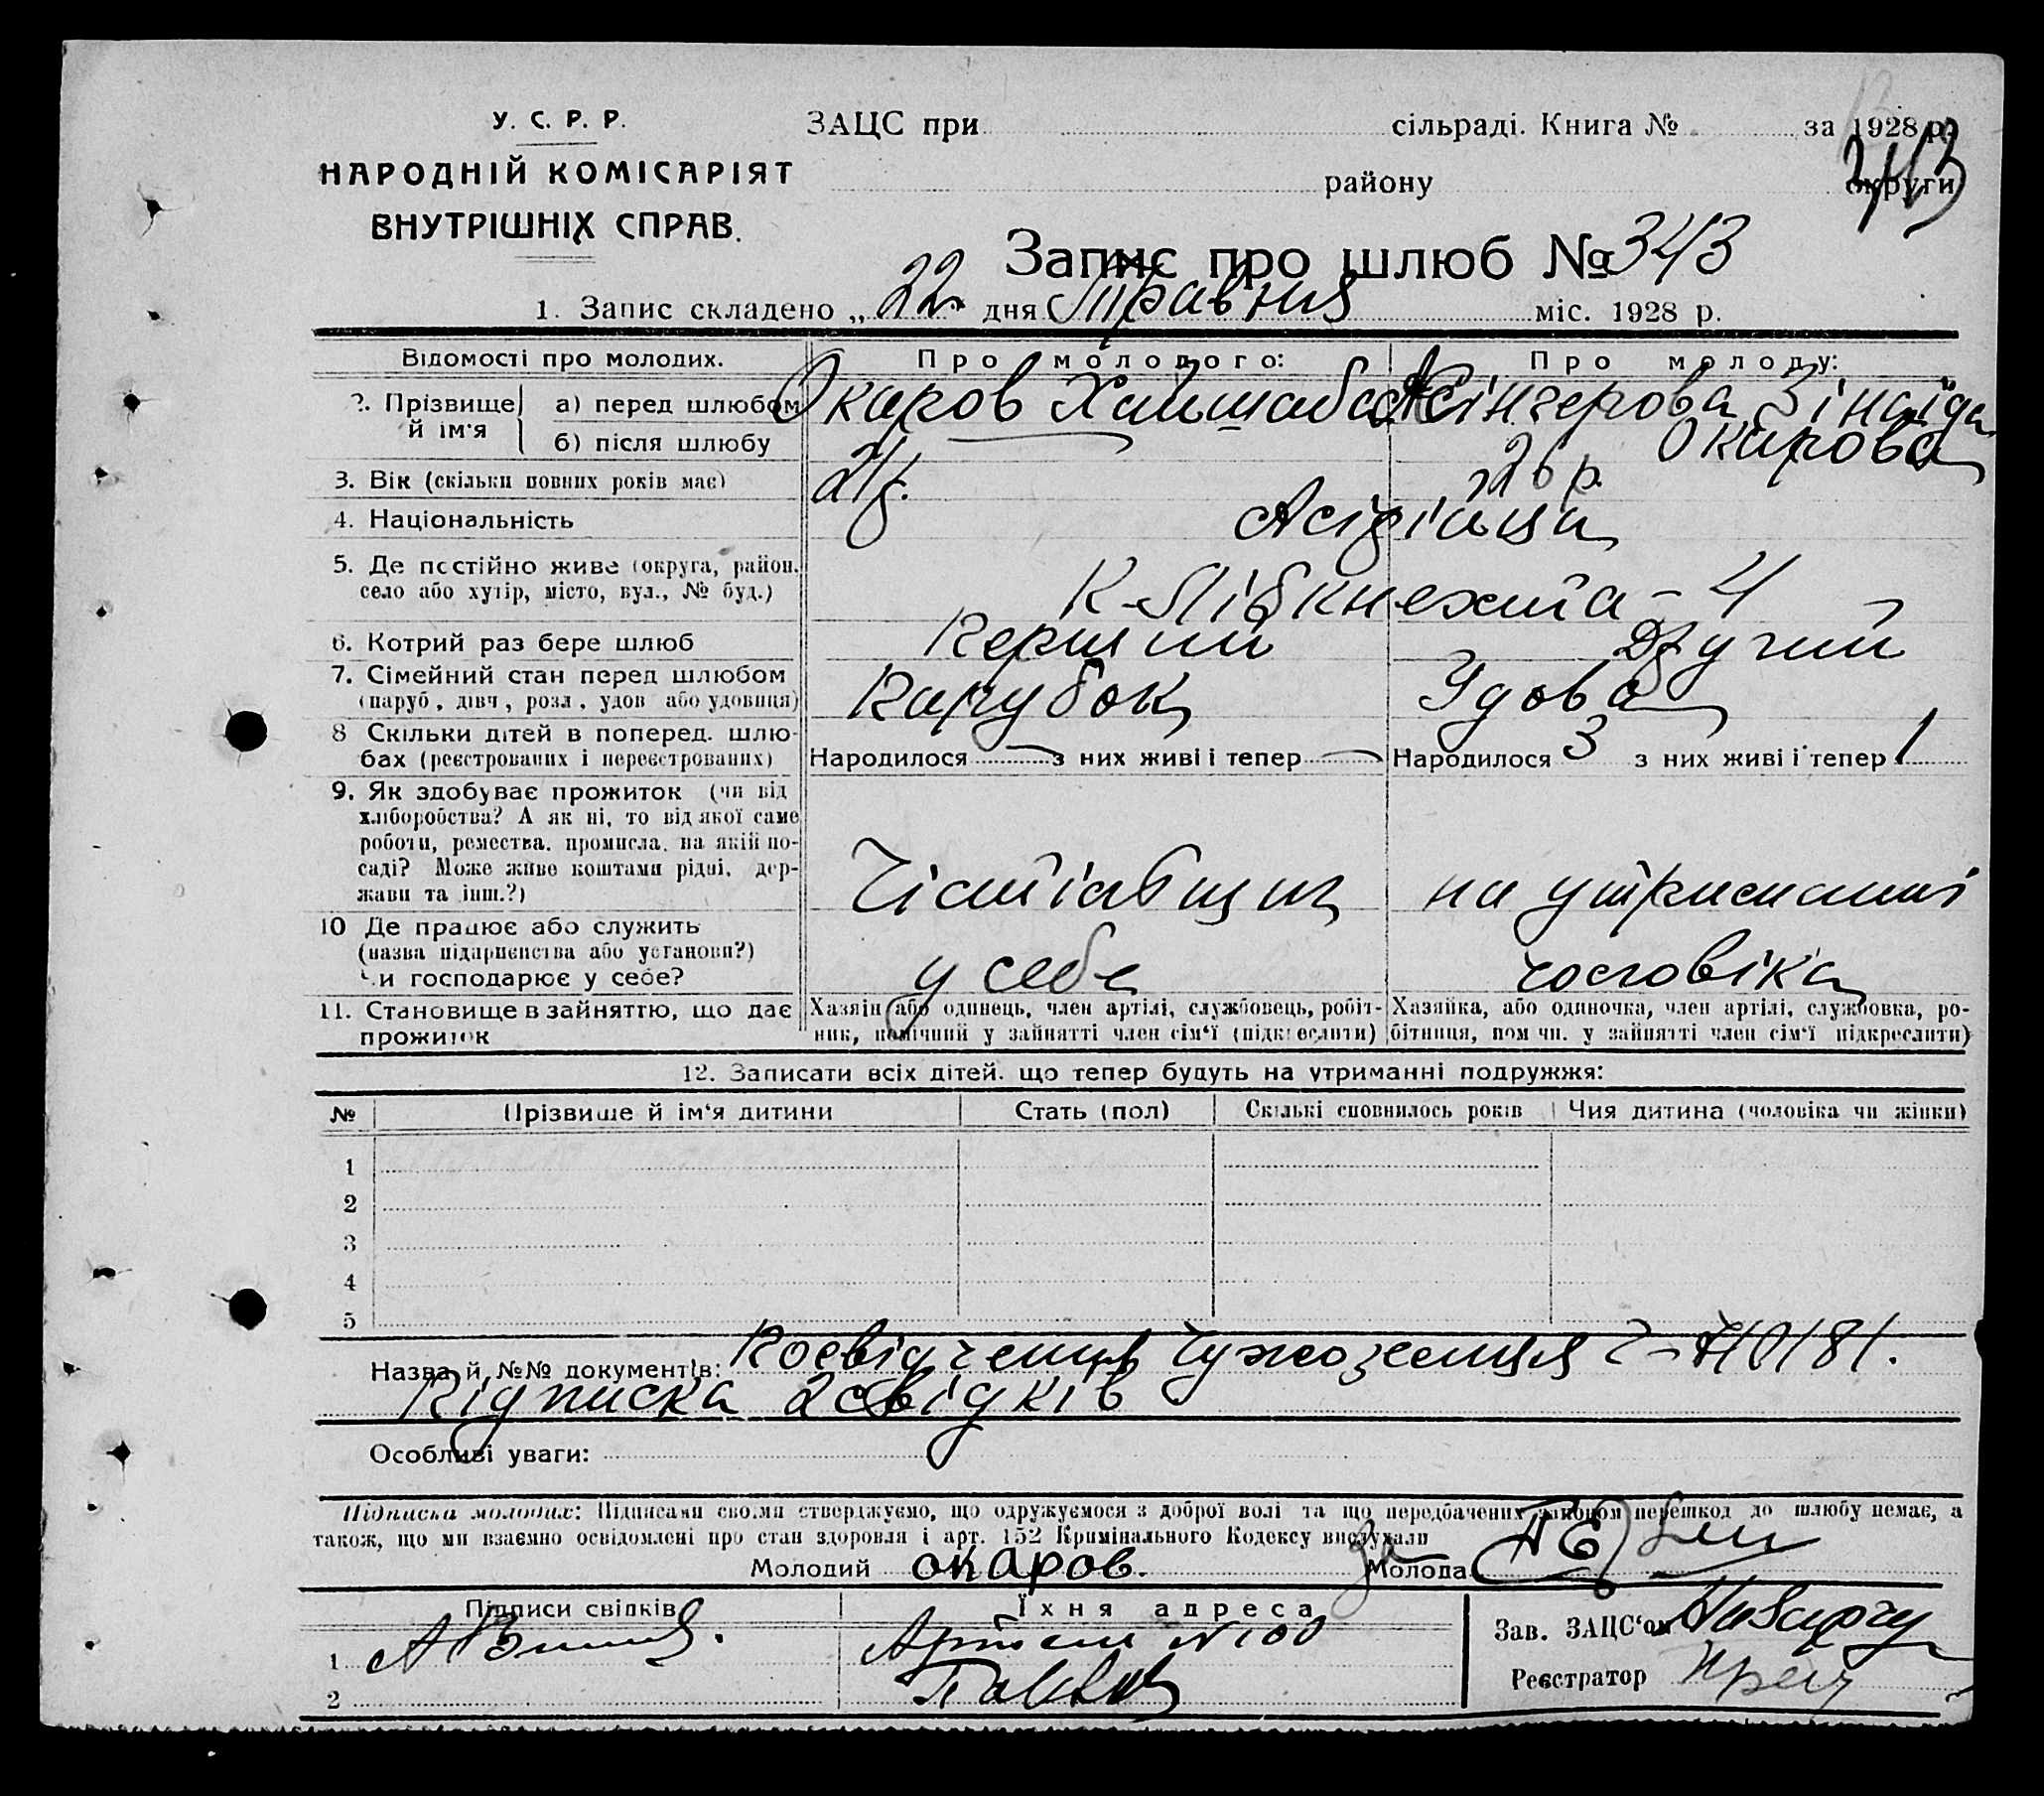 У. С. Р. Р.
НАРОДНІЙ КОМІСАРІЯТ
ВНУТРІШНІХ СПРАВ.
ЗАЦС при сільраді. Книга № за 1928 р.
району округи
Запис про шлюб № 343
1. Запис складено „ 22 " дня Травня міс. 1928 р.
Відомості про молодих. Про молодого: Про молоду:
2. Прізвище й ім'я
а) перед шлюбом Окаров Зінаїда
б) після шлюбу Окарова
3. Вік (скільки повних років має) 26 р.
4. Національність
5. Де постійно живе (округа, район,
село або хутір, місто, вул., № буд.) К-Лібкнехта - 4
6. Котрий раз бере шлюб Перший Другий
7. Сімейний стан перед шлюбом
(паруб., дівч., розл., удов. або удовиця) Парубок Удова
8 Скільки дітей в поперед. шлю-
бах (реєстрованих і нереєстрованих) Народилося — з них живі і тепер — Народилося 3 з них живі і тепер 1
9. Як здобуває прожиток (чи від
хліборобства? А як ні, то від якої саме
роботи, ремества, промисла, на якій по-
саді? Може живе коштами рідні, дер-
жави та інш.?) на утриманні
10 Де працює або служить
(назва підприємства або установи?)
Чи господарює у себе? у себе чоловіка
11. Становище в зайняттю, що дає
прожиток
Хазяін або одинець, член артілі, службовець, робіт-
ник, помічний у зайнятті член сім'ї (підкреслити)
Хазяйка, або одиночка, член артілі, службовка, ро-
бітниця, помічн. у зайнятті член сім'ї підкреслити)
12. Записати всіх дітей, що тепер будуть на утриманні подружжя:
№ Прізвище й ім'я дитини Стать (пол) Скількі сповнилось років Чия дитина (чоловіка чи жінки)
1
2
3
4
5
Назва й №№ документів: Посвідчення Чужоземця
Підписка 2 свідків
Особливі уваги:
Підписка молодих: Підписами своїми стверджуємо, що одружуємося з доброї волі та що передбачених законом перешкод до шлюбу немає, а
також, що ми взаємно освідомлені про стан здоровля і арт. 152 Кримінального Кодексу вислухали
Молодий окаров. За Молода
Підписи свідків Їхня адреса Зав. ЗАЦС'ом
1 Артема N 100
2 Реєстратор